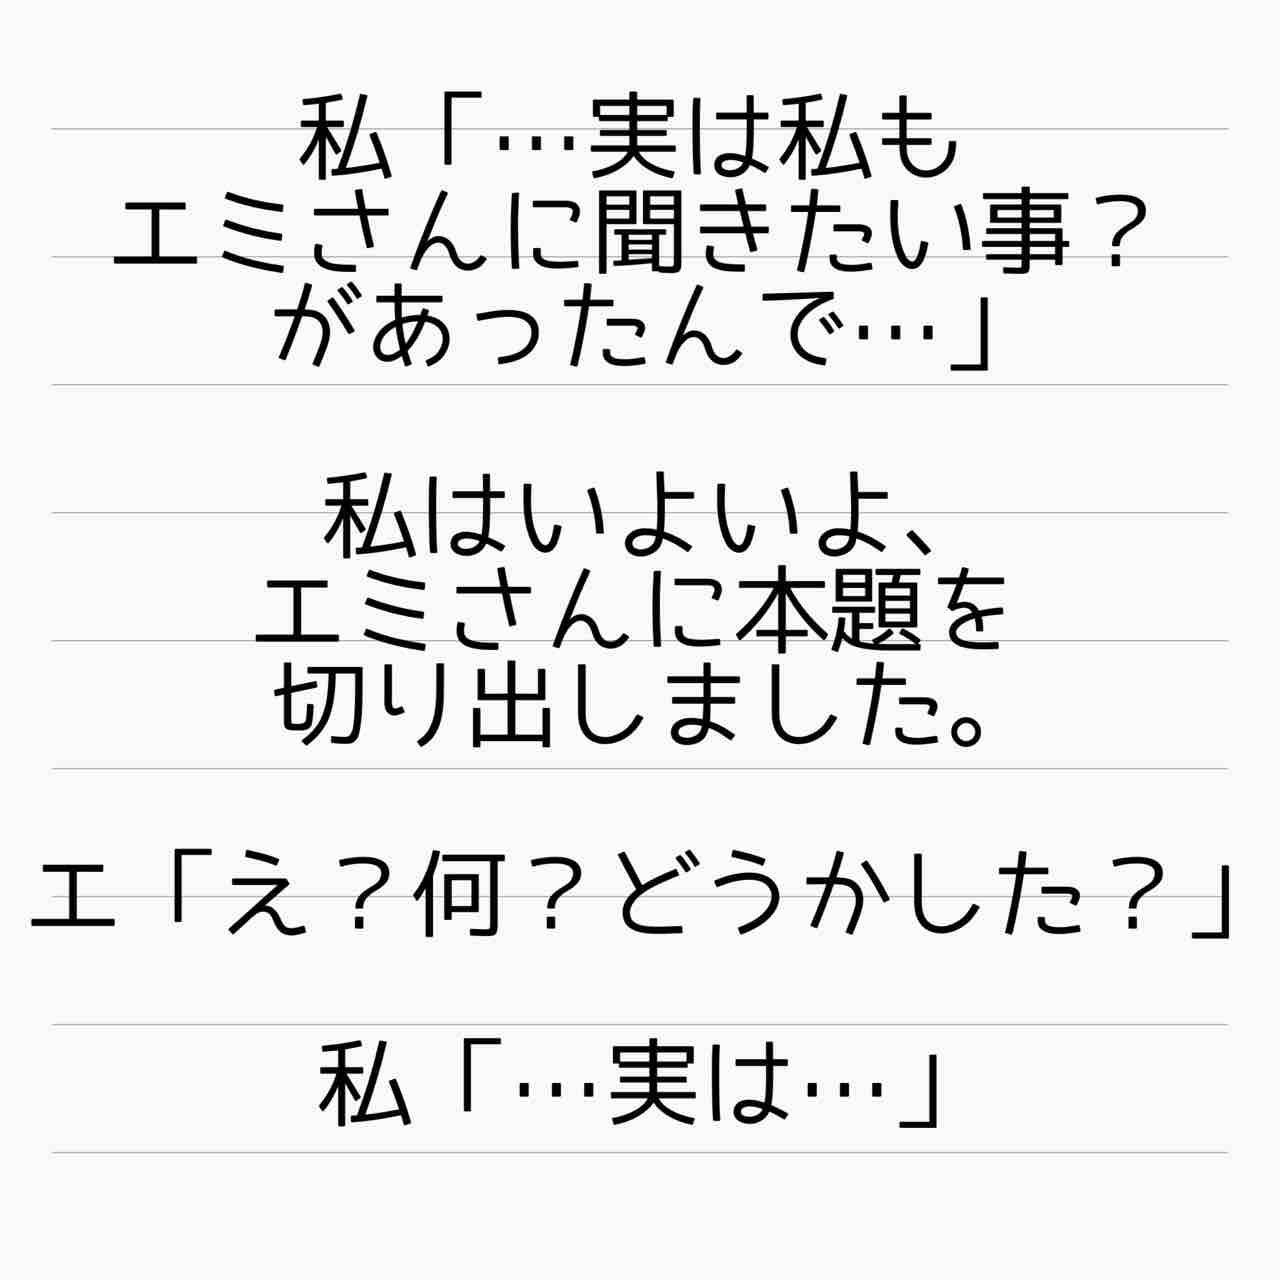 私「…実は私も
エミさんに聞きたい事？
があったんで…」
私はいよいよ、
エミさんに本題を
切り出しました。
エ「え？何？どうかした？」
私「…実は…」